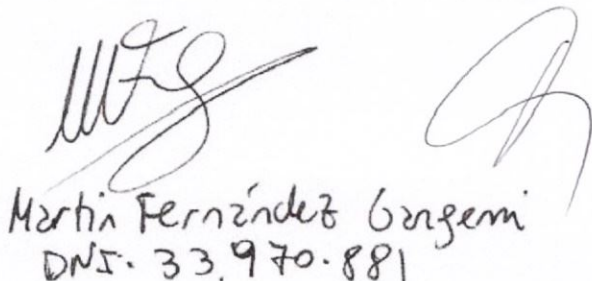 Martin Fernández Gangemi
DNI. 33.970.881